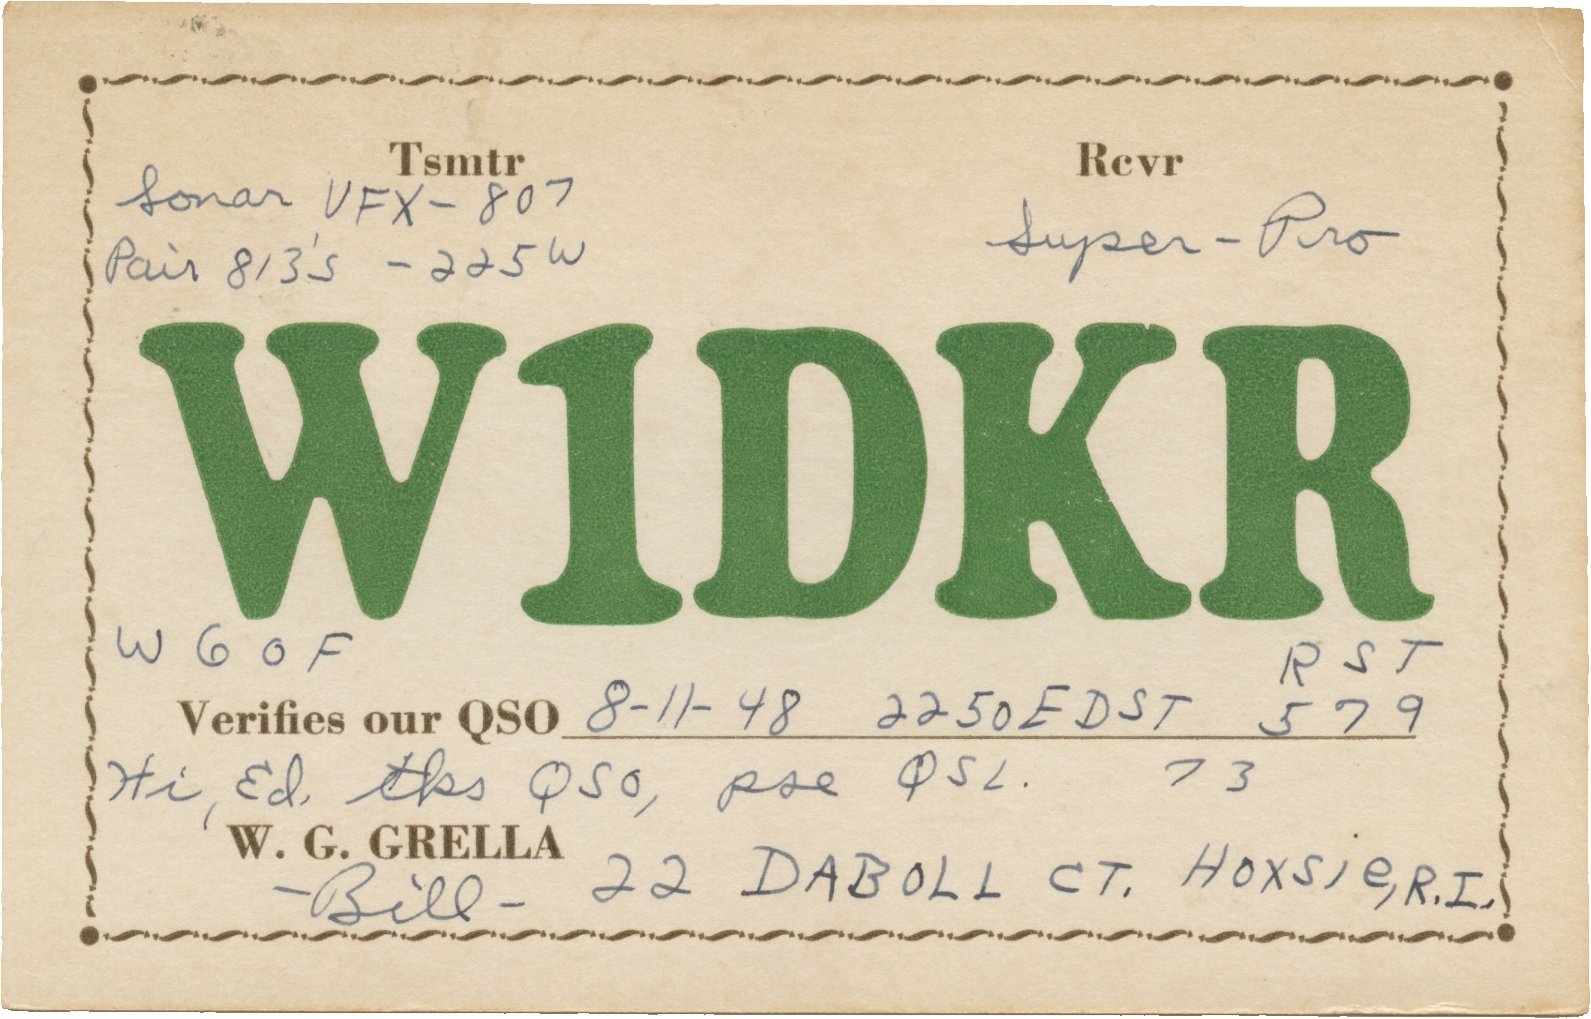 Tsmtr Rcvr
Sonar VFX-807
Super-Pro
Pair 813's -225W
W1DKR
W6OF RST
Verifies our QSO 8-11-48 2250EDST 579
Hi, Ed, tks QSO, pse QSL. 73
W. G. GRELLA
22 DABOLL CT. HOXSie, R.I.
-Bill-